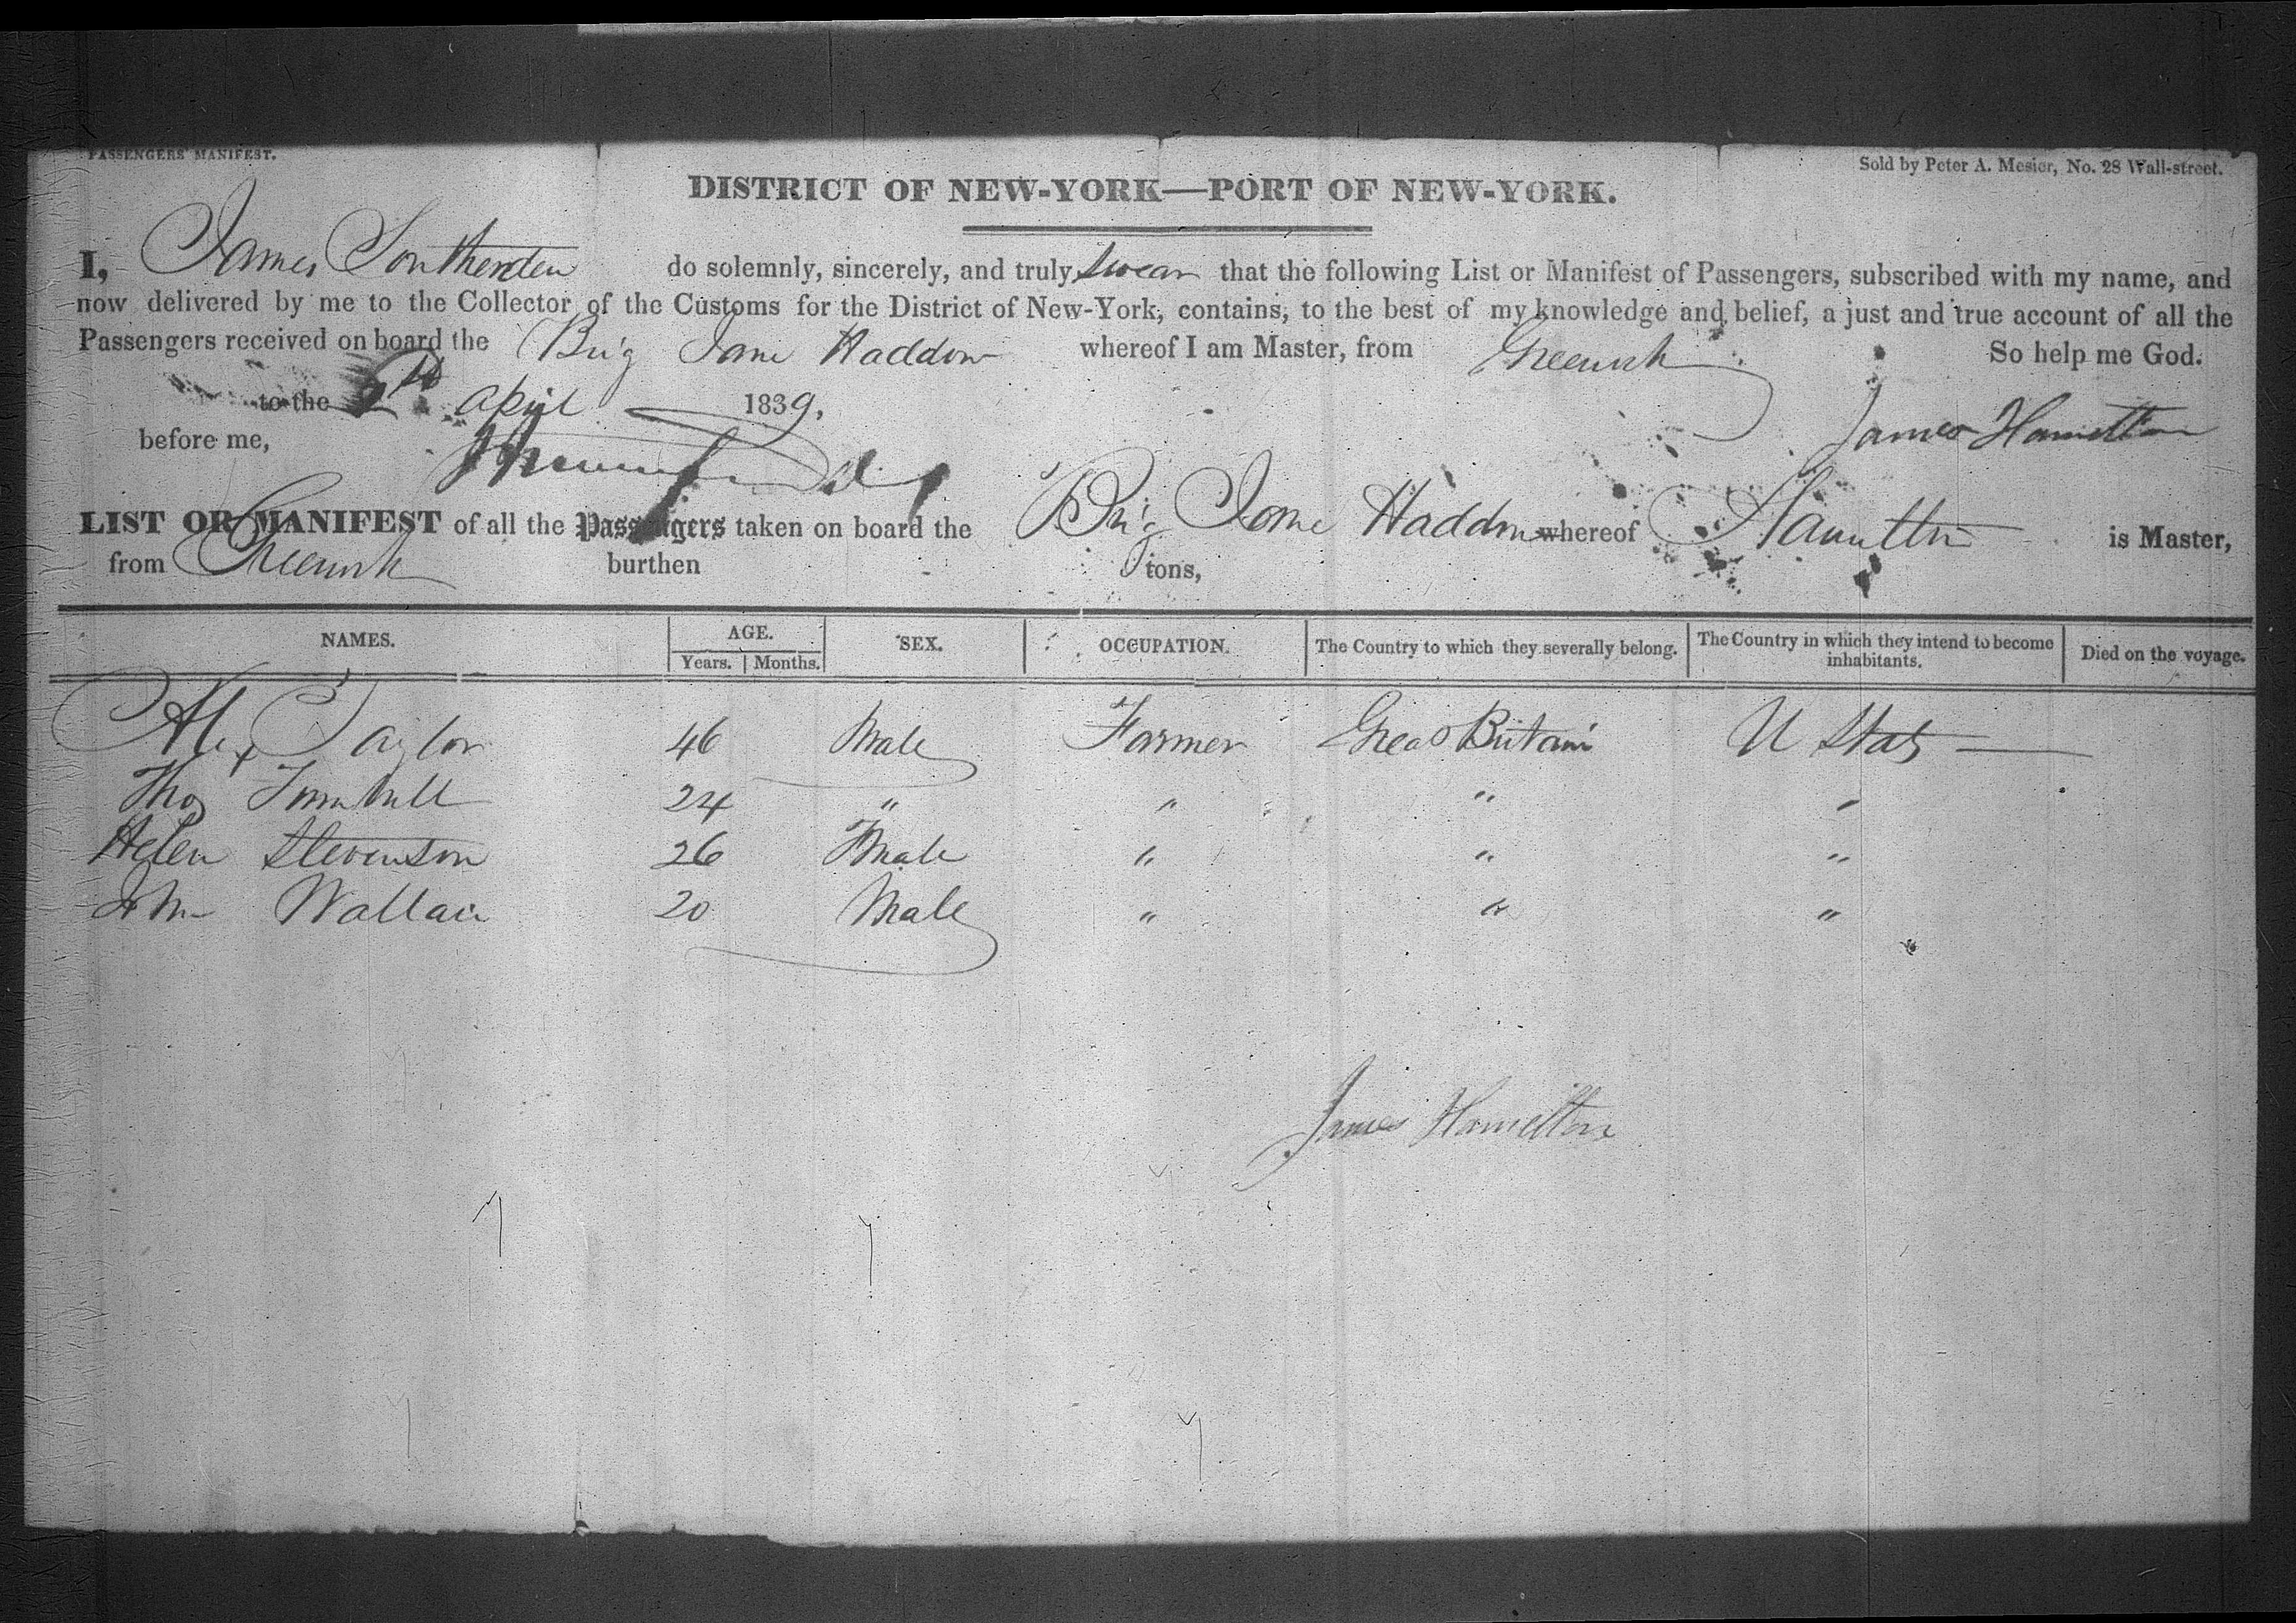 PASSENGERS' MANIFEST.
Sold by Peter A. Mesier, No. 28 Wall-street.
DISTRICT OF NEW-YORK—PORT OF NEW-YORK.
I, James Southerden do solemnly, sincerely, and truly swear that the following List or Manifest of Passengers, subscribed with my name, and
now delivered by me to the Collector of the Customs for the District of New-York, contains, to the best of my knowledge and belief, a just and true account of all the
Passengers received on board the Brig Jane Haddow whereof I am Master, from Greenock So help me God.
to the April 1839.
James Hamilton
before me,
LIST OR MANIFEST of all the Passengers taken on board the Brig Jane Haddow whereof Hamilton is Master,
from Greenock burthen tons,
NAMES. AGE. Years. Months. SEX. OCCUPATION. The Country to which they severally belong. The Country in which they intend to become inhabitants. Died on the voyage.
Alex Taylor 46 Male Farmer Great Britain U Stats
Thos Turnbull 24 " " " "
Helen Stevenson 26 Fmale " " "
John Wallace 20 Male " " "
James Hamilton